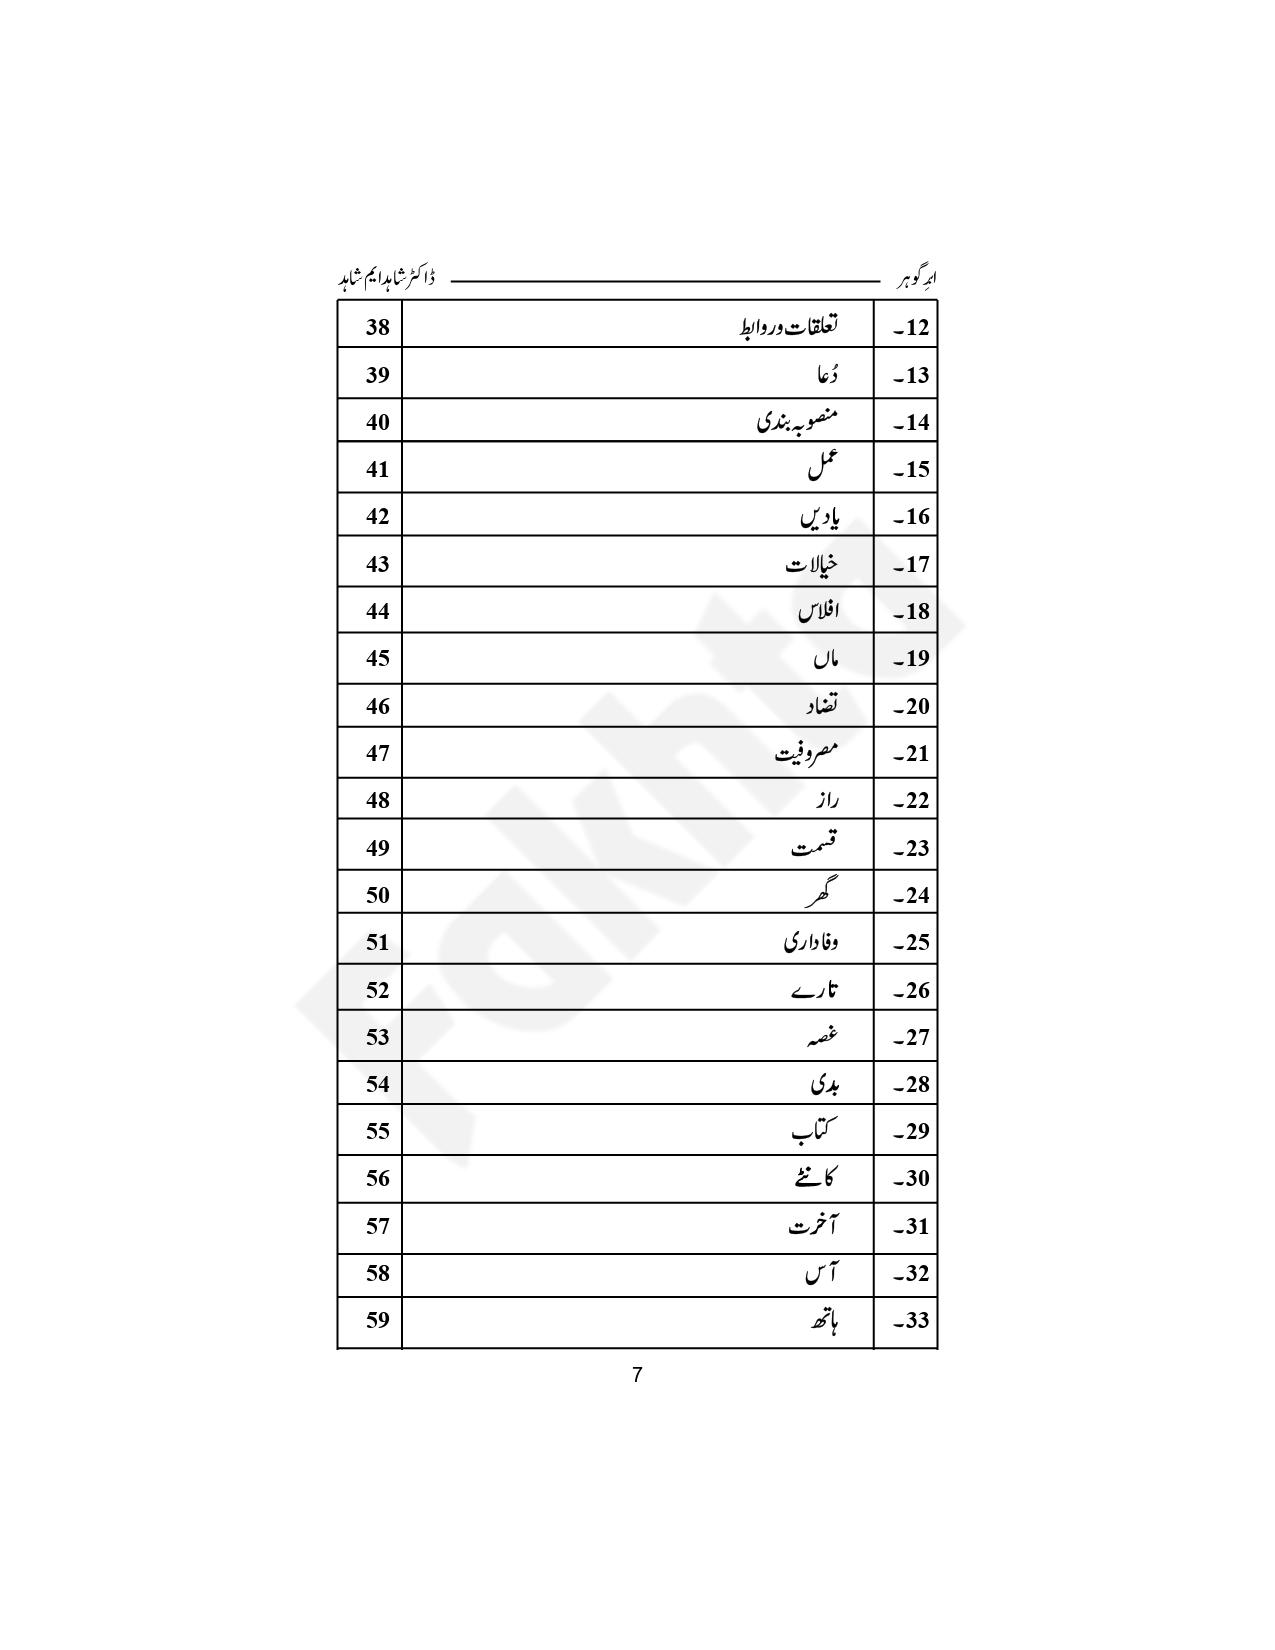 ابدِ گوہر ڈاکٹر شاہد ایم شاہد
12۔ تعلقات و روابط 38
13۔ دُعا 39
14۔ منصوبہ بندی 40
15۔ عمل 41
16۔ یادیں 42
17۔ خیالات 43
18۔ افلاس 44
19۔ ماں 45
20۔ تضاد 46
21۔ مصروفیت 47
22۔ راز 48
23۔ قسمت 49
24۔ گھر 50
25۔ وفاداری 51
26۔ تارے 52
27۔ غصہ 53
28۔ بدی 54
29۔ کتاب 55
30۔ کانٹے 56
31۔ آخرت 57
32۔ آس 58
33۔ ہاتھ 59
7
Fakhta